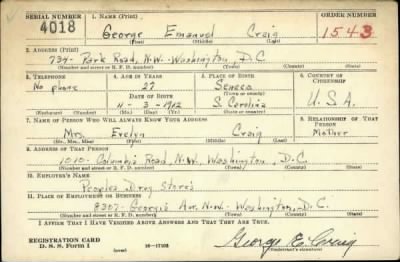 SERIAL NUMBER 1. NAME (Print) ORDER NUMBER
4018 George Emanuel Craig 1543
(First) (Middle) (Last)
2. ADDRESS (Print)
734- Park Road, N.W. Washington, D.C.
(Number and street or R. F. D. number) (Town) (County) (State)
3. TELEPHONE 4. AGE IN YEARS 5. PLACE OF BIRTH 6. COUNTRY OF CITIZENSHIP
No phone 27 Seneca
DATE OF BIRTH (Town or county)
4 - 3 - 1912 S. Carolina U.S.A.
(Mo.) (Day) (Yr.) (State or country)
7. NAME OF PERSON WHO WILL ALWAYS KNOW YOUR ADDRESS 8. RELATIONSHIP OF THAT PERSON
Mrs. Evelyn Craig Mother
(Mr., Mrs., Miss) (First) (Middle) (Last)
9. ADDRESS OF THAT PERSON
1010- Columbia Road, N.W. Washington, D.C.
(Number and street or R. F. D. number) (Town) (County) (State)
10. EMPLOYER'S NAME
Peoples Drug Stores
11. PLACE OF EMPLOYMENT OR BUSINESS
Georgia Ave. N.W. Washington, D.C.
(Number and street or R. F. D. number) (Town) (County) (State)
I AFFIRM THAT I HAVE VERIFIED ABOVE ANSWERS AND THAT THEY ARE TRUE.
REGISTRATION CARD
D. S. S. Form 1 (over) 16—17105 George E. Craig
(Registrant's signature)